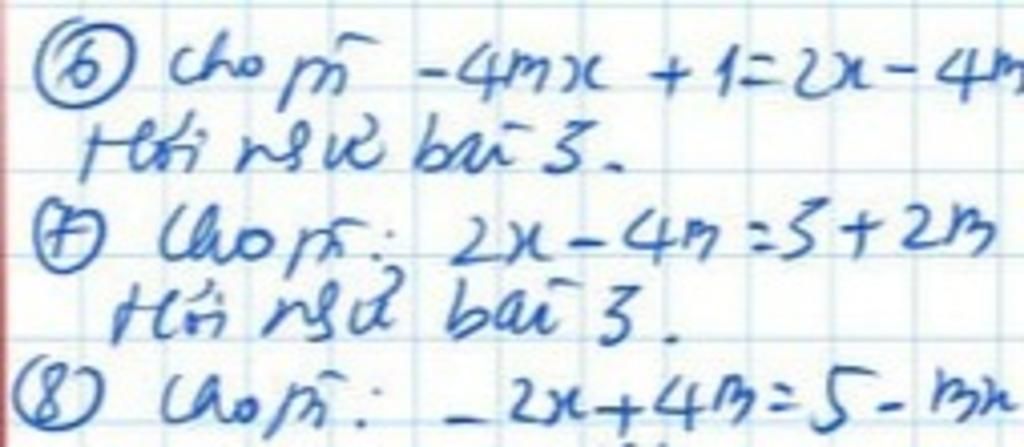 ⑥ Cho pt̄ -4mx + 1 = 2x - 4m
Hỏi như bài 3.
⑦ Cho pt̄: 2x - 4m = 3 + 2m
Hỏi như bài 3.
⑧ Cho pt̄: -2x + 4m = 5 - mx